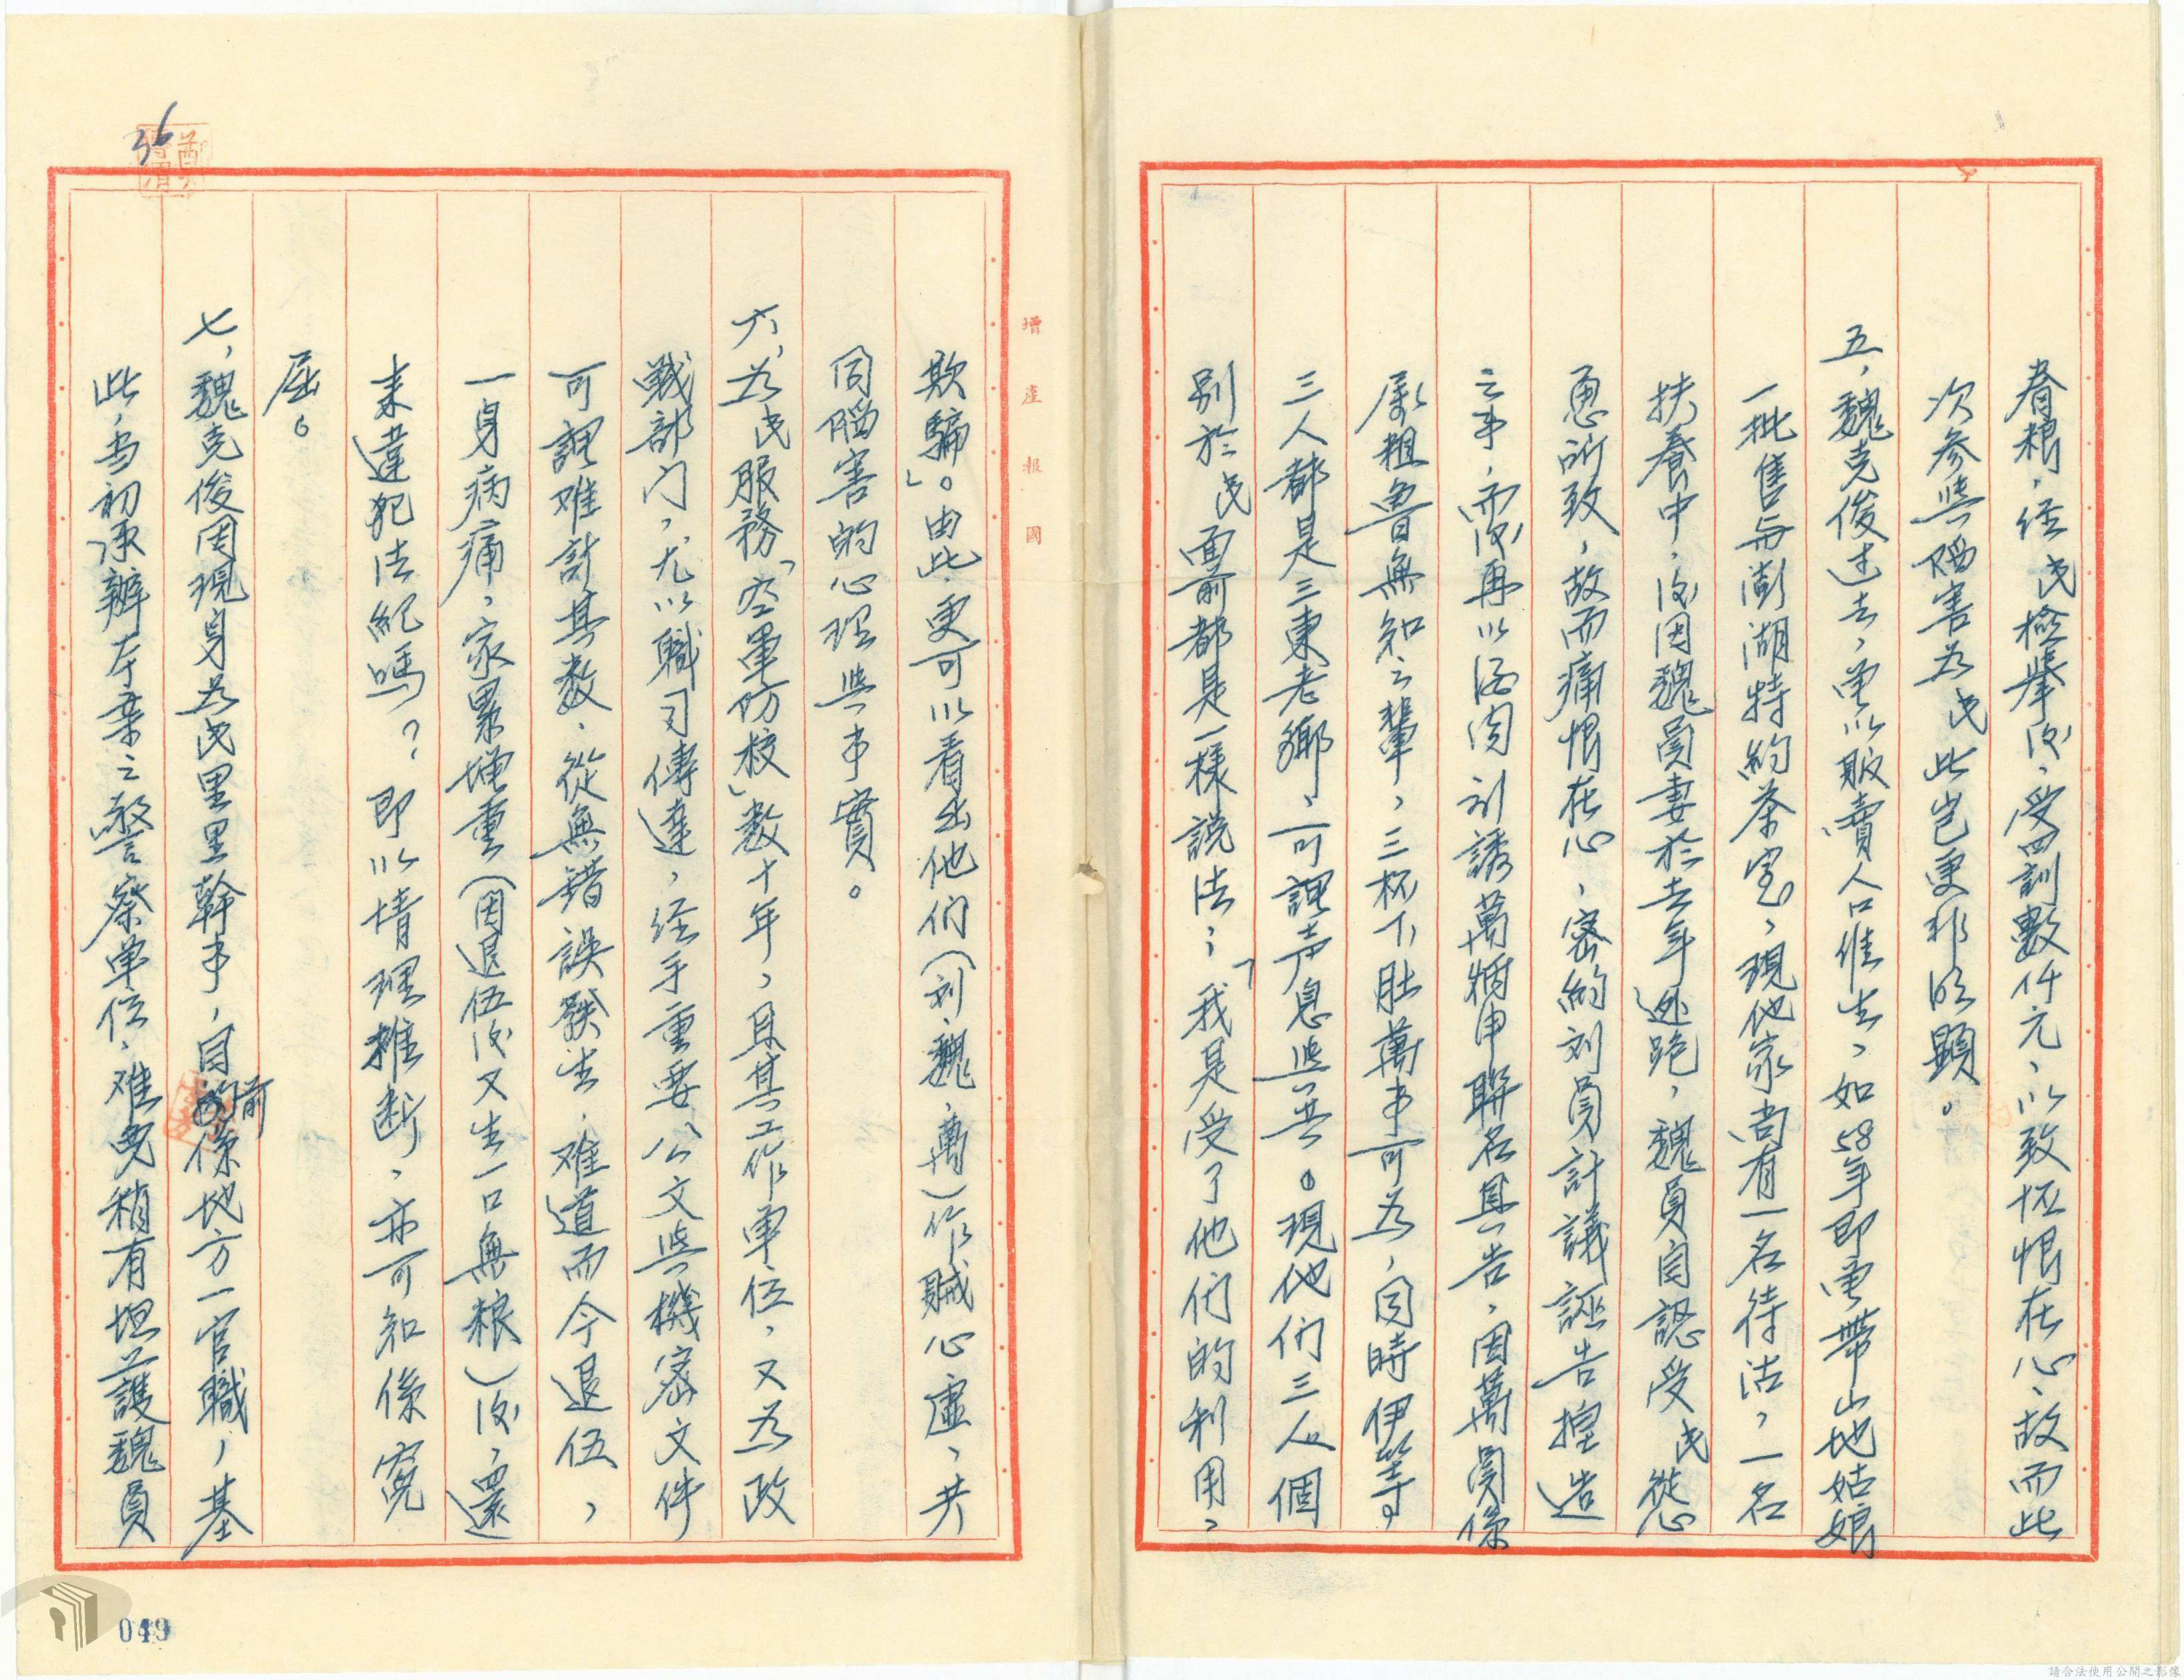 眷粮，经民檢举后，受罰數仟元，以致怀恨在心，故而此
次参與陷害为民此岂更非明顯。
五，魏克俊过去，曾以販賣人口維生，如58年即曾帶山地姑娘
一批售与澎湖特約茶室，現他家尚有一名待沽，一名
扶養中，后因魏員妻於去年逃跑，魏員自認受民慫
恿所致，故而痛恨在心，密約刘員計議誣告揑造
之事，而后再以酒肉引誘萬炳申聯名具告，因萬員係
屬粗魯無知之輩，三杯下肚萬事可为，同時伊等
三人都是三東老鄉，可謂声息與共。現他们三人個
別於民面前都是一樣説法；「我是受了他们的利用，
增產报國
欺騙」。由此，更可以看出他们（刘，魏，萬）作贼心虛，共
同陷害的心理與事實。
六，为民服務「空軍防校」数十年，且其工作单位，又为政
戰部门，尤以職司傳達，经手重要公文與機密文件
可謂难計其数，從無錯誤發生，难道而今退伍，
一身病痛，家累增重（因退伍后又生一口無粮）后，還
来違犯法紀嗎？即以情理推断，亦可知係寃
屈。
七，魏克俊因現身为民里里幹事，目前係地方一官職，基
此，当初承辦本案之警察单位，难免稍有坦護魏員
36
049
請合法使用公開之影像